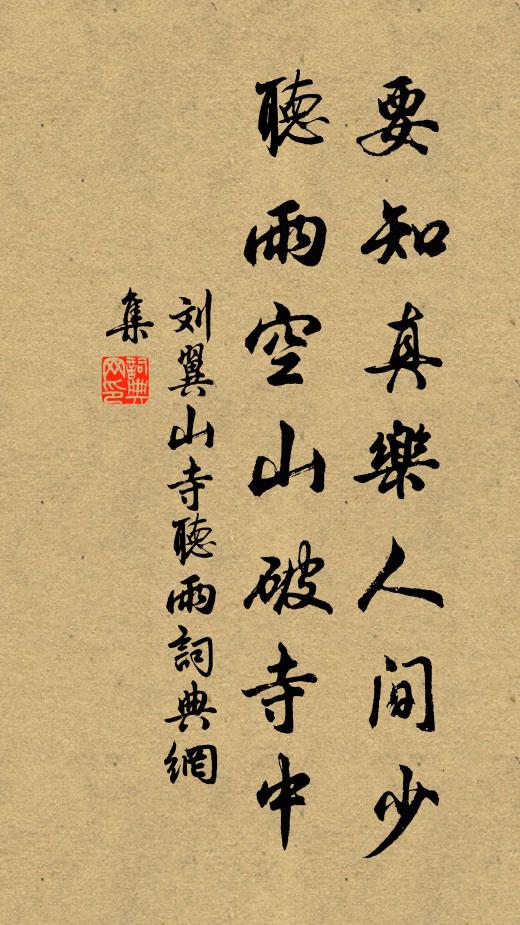 要知真樂人间少
聽雨空山破寺中
刘翼山寺聽雨詞典網
集
詞典网印